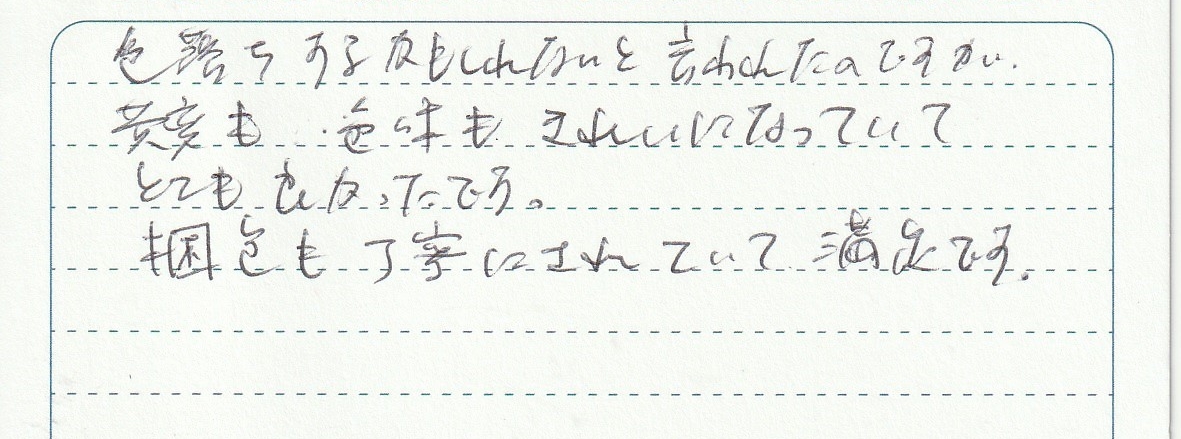 色落ちするかもしれないと言われたのですが、
黄変も、色味もきれいになっていて
とても良かったです。
梱包も丁寧にされていて満足です。